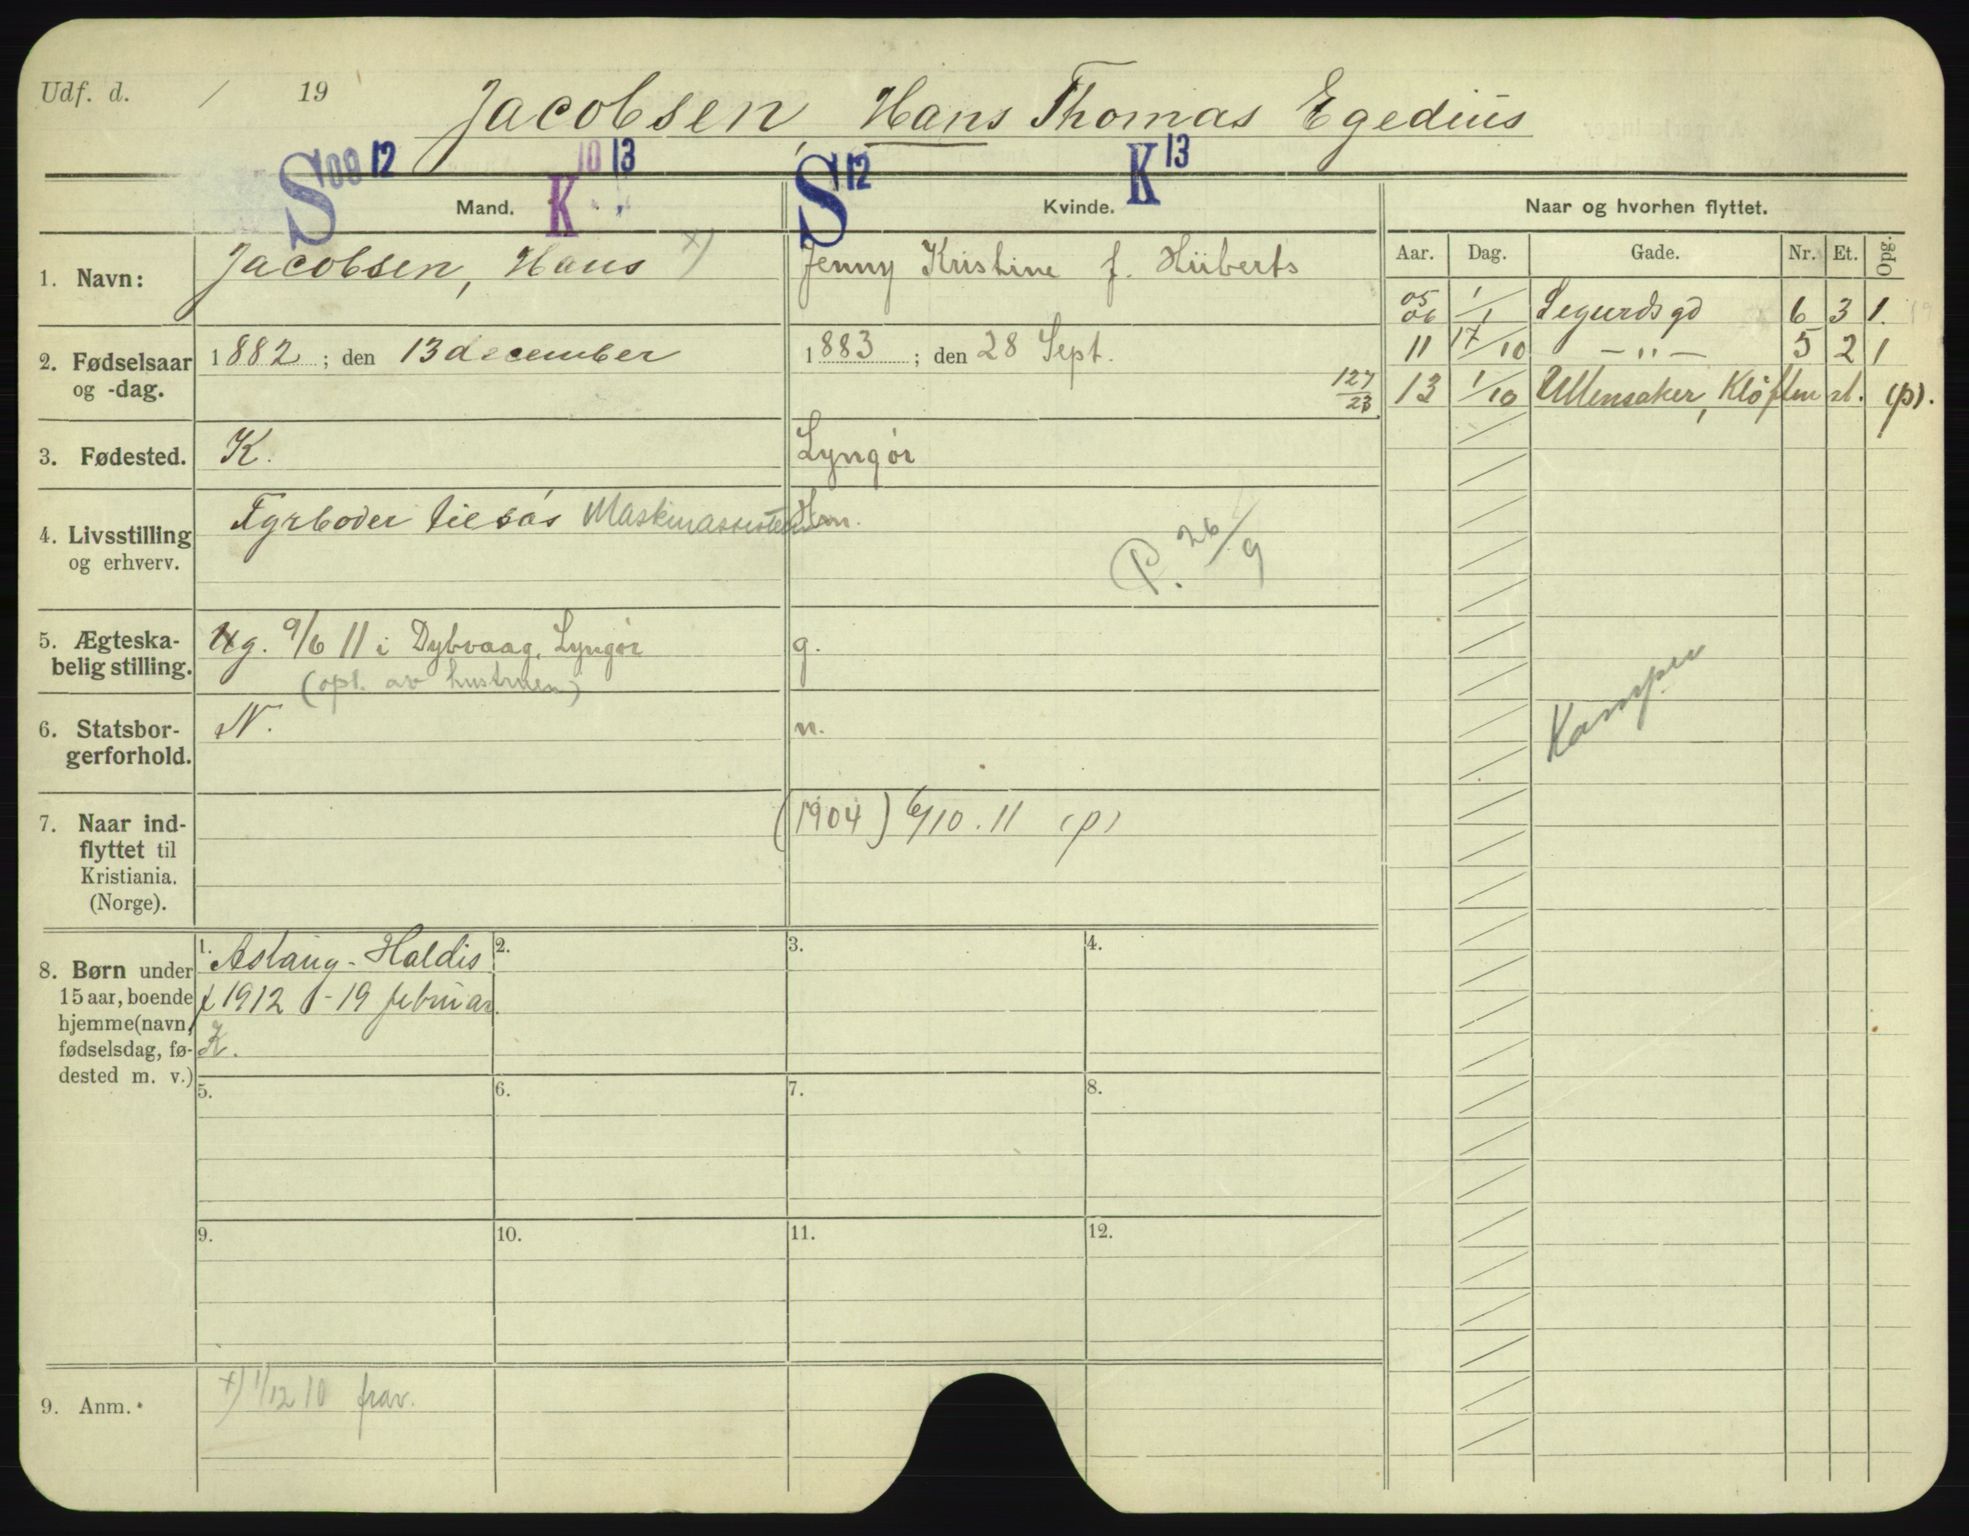 Udf. d. / 19
Jacobsen, Hans Thomas Egedius
S 08 12 K 10 13 S 12 K 13
Mand. Kvinde. Naar og hvorhen flyttet.
Aar. Dag. Gade. Nr. Et. Opg.
1. Navn: Jacobsen, Hans x) Jenny Kristine f. Hüberts
05 06 1/1 Segurdsgd 6 3 1.
2. Fødselsaar og -dag. 1882; den 13 december 1883; den 28 Sept.
11 17/10 — " — 5 2 1
127/23
13 1/10 Ullensaker, Kløften st. (p).
3. Fødested. K. Lyngør
4. Livsstilling og erhverv. Fyrbøder tilsøs Maskinassistent Hm.
P. 26/9
5. Ægteska-
belig stilling. Ug. 9/6 11 i Dybvaag, Lyngør g.
(opl. av hustruen)
Kampen
6. Statsbor-
gerforhold. N. n.
7. Naar ind-
flyttet til
Kristiania.
(Norge).
(1904) 6/10. 11 (p)
8. Børn under
15 aar, boende
hjemme (navn,
fødselsdag, fø-
dested m. v.)
1. Aslaug-Haldis
f 1912 - 19 februar.
K.
2. 3. 4.
5. 6. 7. 8.
9. 10. 11. 12.
9. Anm. x) 1/12 10 frav.